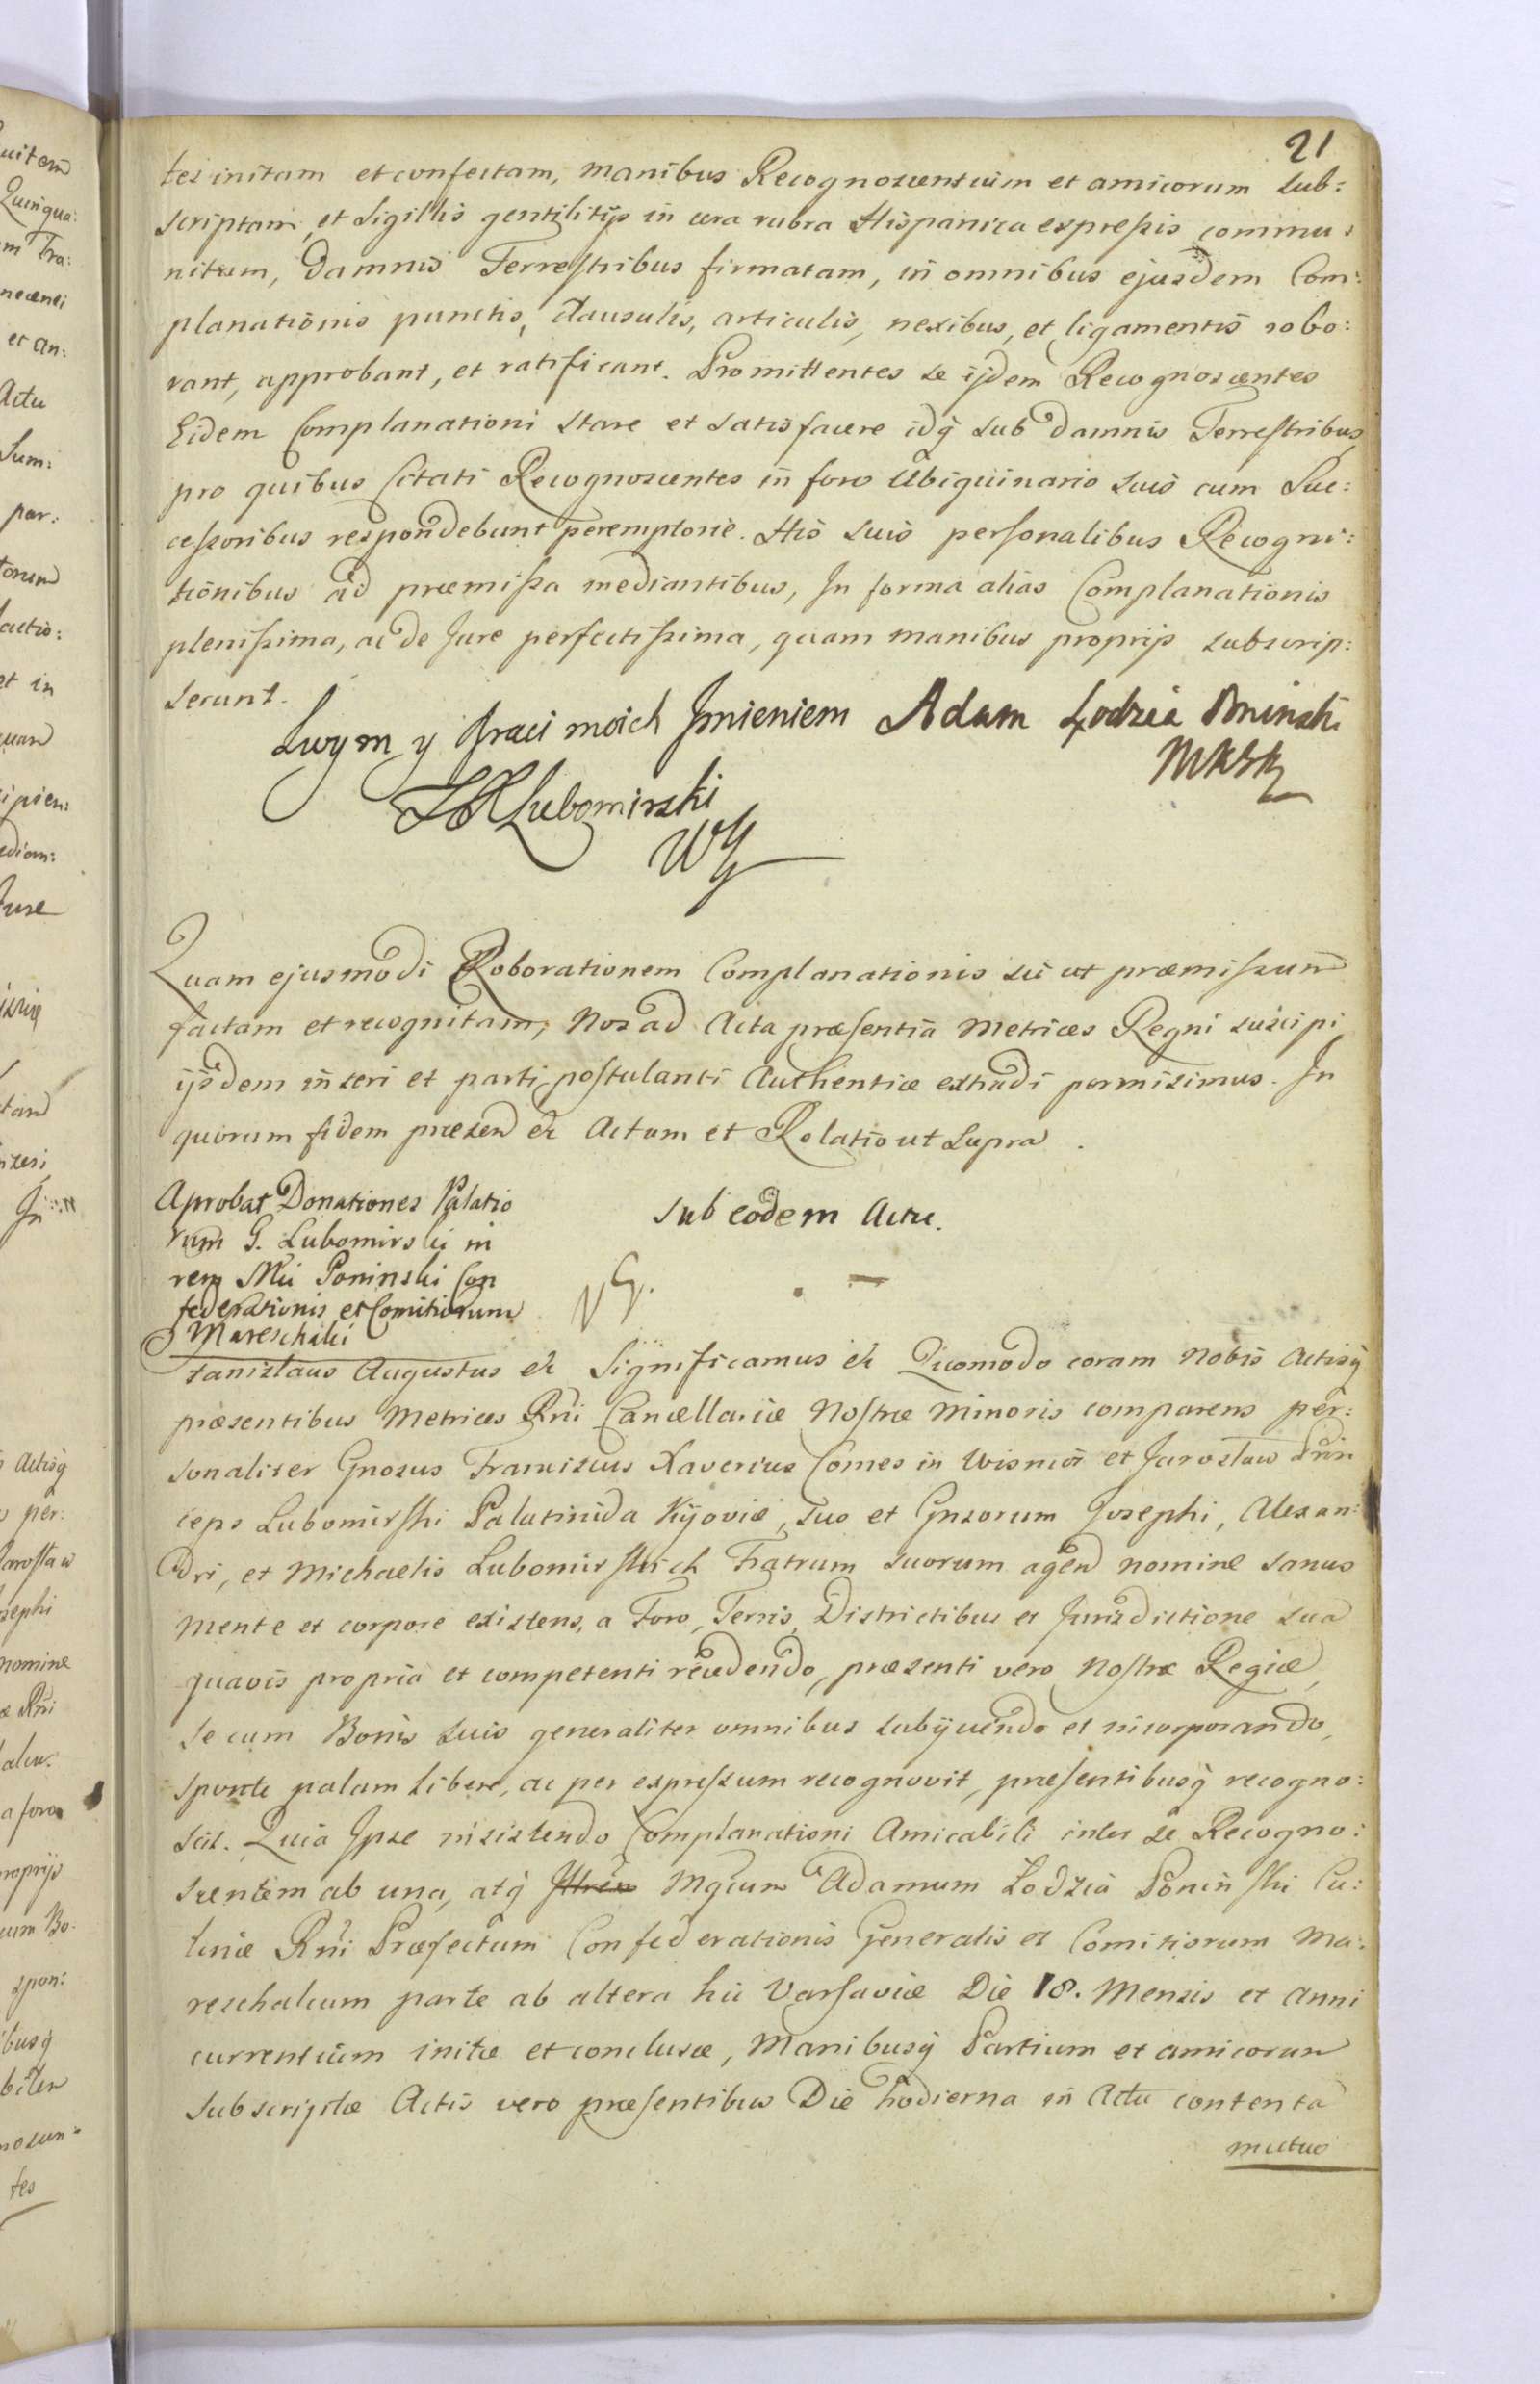 21
tes initam et confectam, manibus Recognoscentium et amicorum sub:
scriptam, et Sigillis gentilitijs in cera rubra Hispanica expressis commu:
nitam, Damnis Terrestribus firmatam, in omnibus ejusdem Com:
planationis punctis, clausulis, articulis, nexibus, et ligamentis robo:
rant, approbant, et ratificant. Promittentes se ijdem Recognoscentes
Eidem Complanationi stare et satisfacere idq̃ sub Damnis Terrestribus,
pro quibus Citati Recognoscentes in foro Ubiquinario suis cum Suc:
cessoribus respondebunt peremptorie. His suis personalibus Recogni:
tionibus ad præmissa mediantibus, In forma alias Complanationis
plenissima, ac de Jure perfectissima, quam manibus proprijs subscrip:
serunt.
Swym y Braci moich Jmieniem Adam Łodzia Poninski
MKSK
Lubomirski
Quam ejusmodi Roborationem Complanationis sic ut præmissum
factam et recognitam, Nos ad Acta præsentia Metrices Regni suscipi
ijsdem inseri et parti postulanti Authentice extradi permisimus. In
quorum fidem præsen̄ &c Actum et Relatio ut Supra.
Aprobat Donationes Palatio
rum G. Lubomirski in
rem Mci Poninski Con
federationis et Comitiorum
Mareschalci
Sub eodem Actu.
Stanislaus Augustus &c Significamus &c Quomodo coram Nobis Actisq̃
præsentibus Metrices Rñi Cancellariæ Nostræ Minoris comparens per:
sonaliter Gnosus Franciscus Xaverius Comes in Wisnicz et Jaroslaw Prin
ceps Lubomirski Palatinida Kijoviæ, suo et Gnsorum Josephi, Alexan:
dri, et Michaelis Lubomirskich Fratrum suorum agen̄ nomine sanus
mente et corpore existens, a Foro, Terris, Districtibus et Jurisdictione sua
quavis propria et competenti recedendo, præsenti vero Nostræ Regiæ,
se cum Bonis suis generaliter omnibus subijciendo et incorporando,
sponte palam libere, ac per expressum recognovit, præsentibusq̃ recogno:
scit. Quia Ipse insistendo Complanationi Amicabili inter se Recogno:
scentem ab una, atq̃ Mgcum Adamum Łodzia Poninski Cu:
linæ Rñi Præfectum Confederationis Generalis et Comitiorum Ma:
reschalcum parte ab altera hic Varsaviæ Die 18. Mensis et Anni
currentium initæ et conclusæ, Manibusq̃ Partium et amicorum
Subscriptæ Actis vero præsentibus Die hodierna in Actu contenta
mutuo